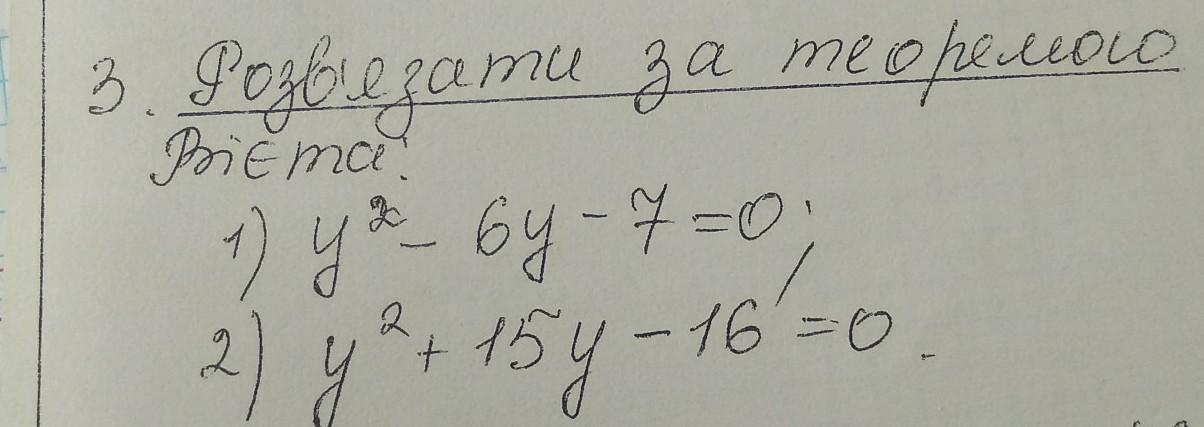 3. Розв'язати за теоремою
Вієта:
1) y² - 6y - 7 = 0;
2) y² + 15y - 16 = 0.